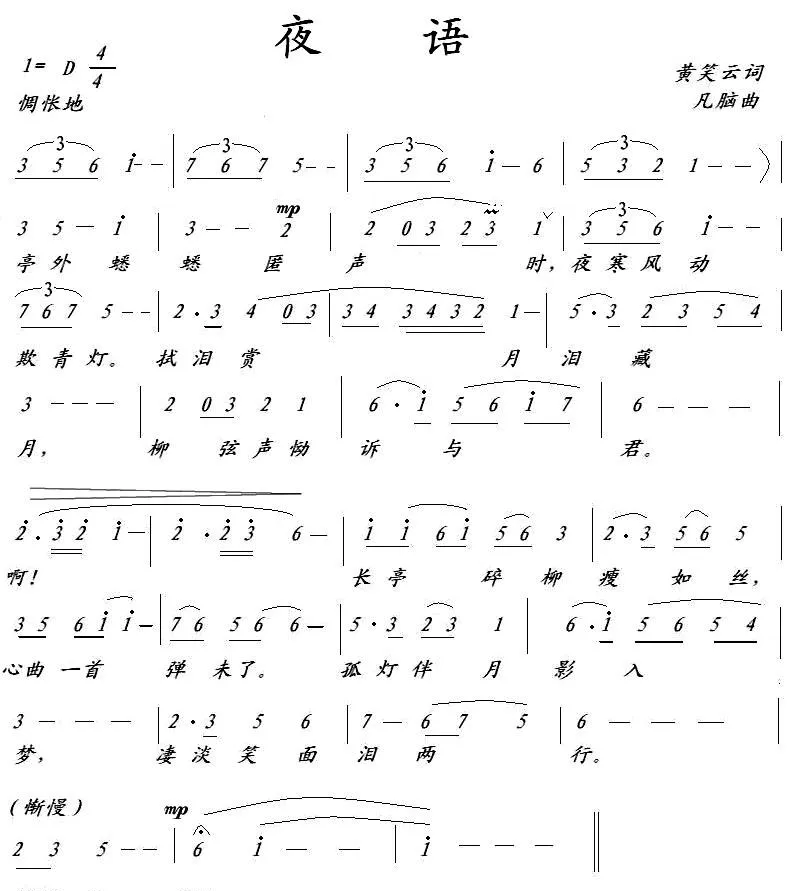 夜 语
1= D 4/4
黄笑云词
惆怅地
凡脑曲
3 5 6 i - - | 7 6 7 5 - - | 3 5 6 i - 6 | 5 3 2 1 - - |
mp
3 5 - i | 3 - - 2 | 2 0 3 2 3 1 | 3 5 6 i - - |
亭外蟋蟋匿声时,夜寒风动
7 6 7 5 - - | 2 · 3 4 0 3 | 3 4 3 4 3 2 1 - | 5 · 3 2 3 5 4 |
欺青灯。拭泪赏月泪藏
3 - - - | 2 0 3 2 1 | 6 · i 5 6 i 7 | 6 - - - |
月,柳弦声恸诉与君。
2 · 3 2 i - | 2 · 2 3 6 - | i i 6 i 5 6 3 | 2 · 3 5 6 5 |
啊!长亭碎柳瘦如丝,
3 5 6 i i - | 7 6 5 6 6 - | 5 · 3 2 3 1 | 6 · i 5 6 5 4 |
心曲一首弹未了。孤灯伴月影入
3 - - - | 2 · 3 5 6 | 7 - 6 7 5 | 6 - - - |
梦,凄淡笑面泪两行。
(惭慢) mp
2 3 5 - - | 6 i - - | i - - - ||